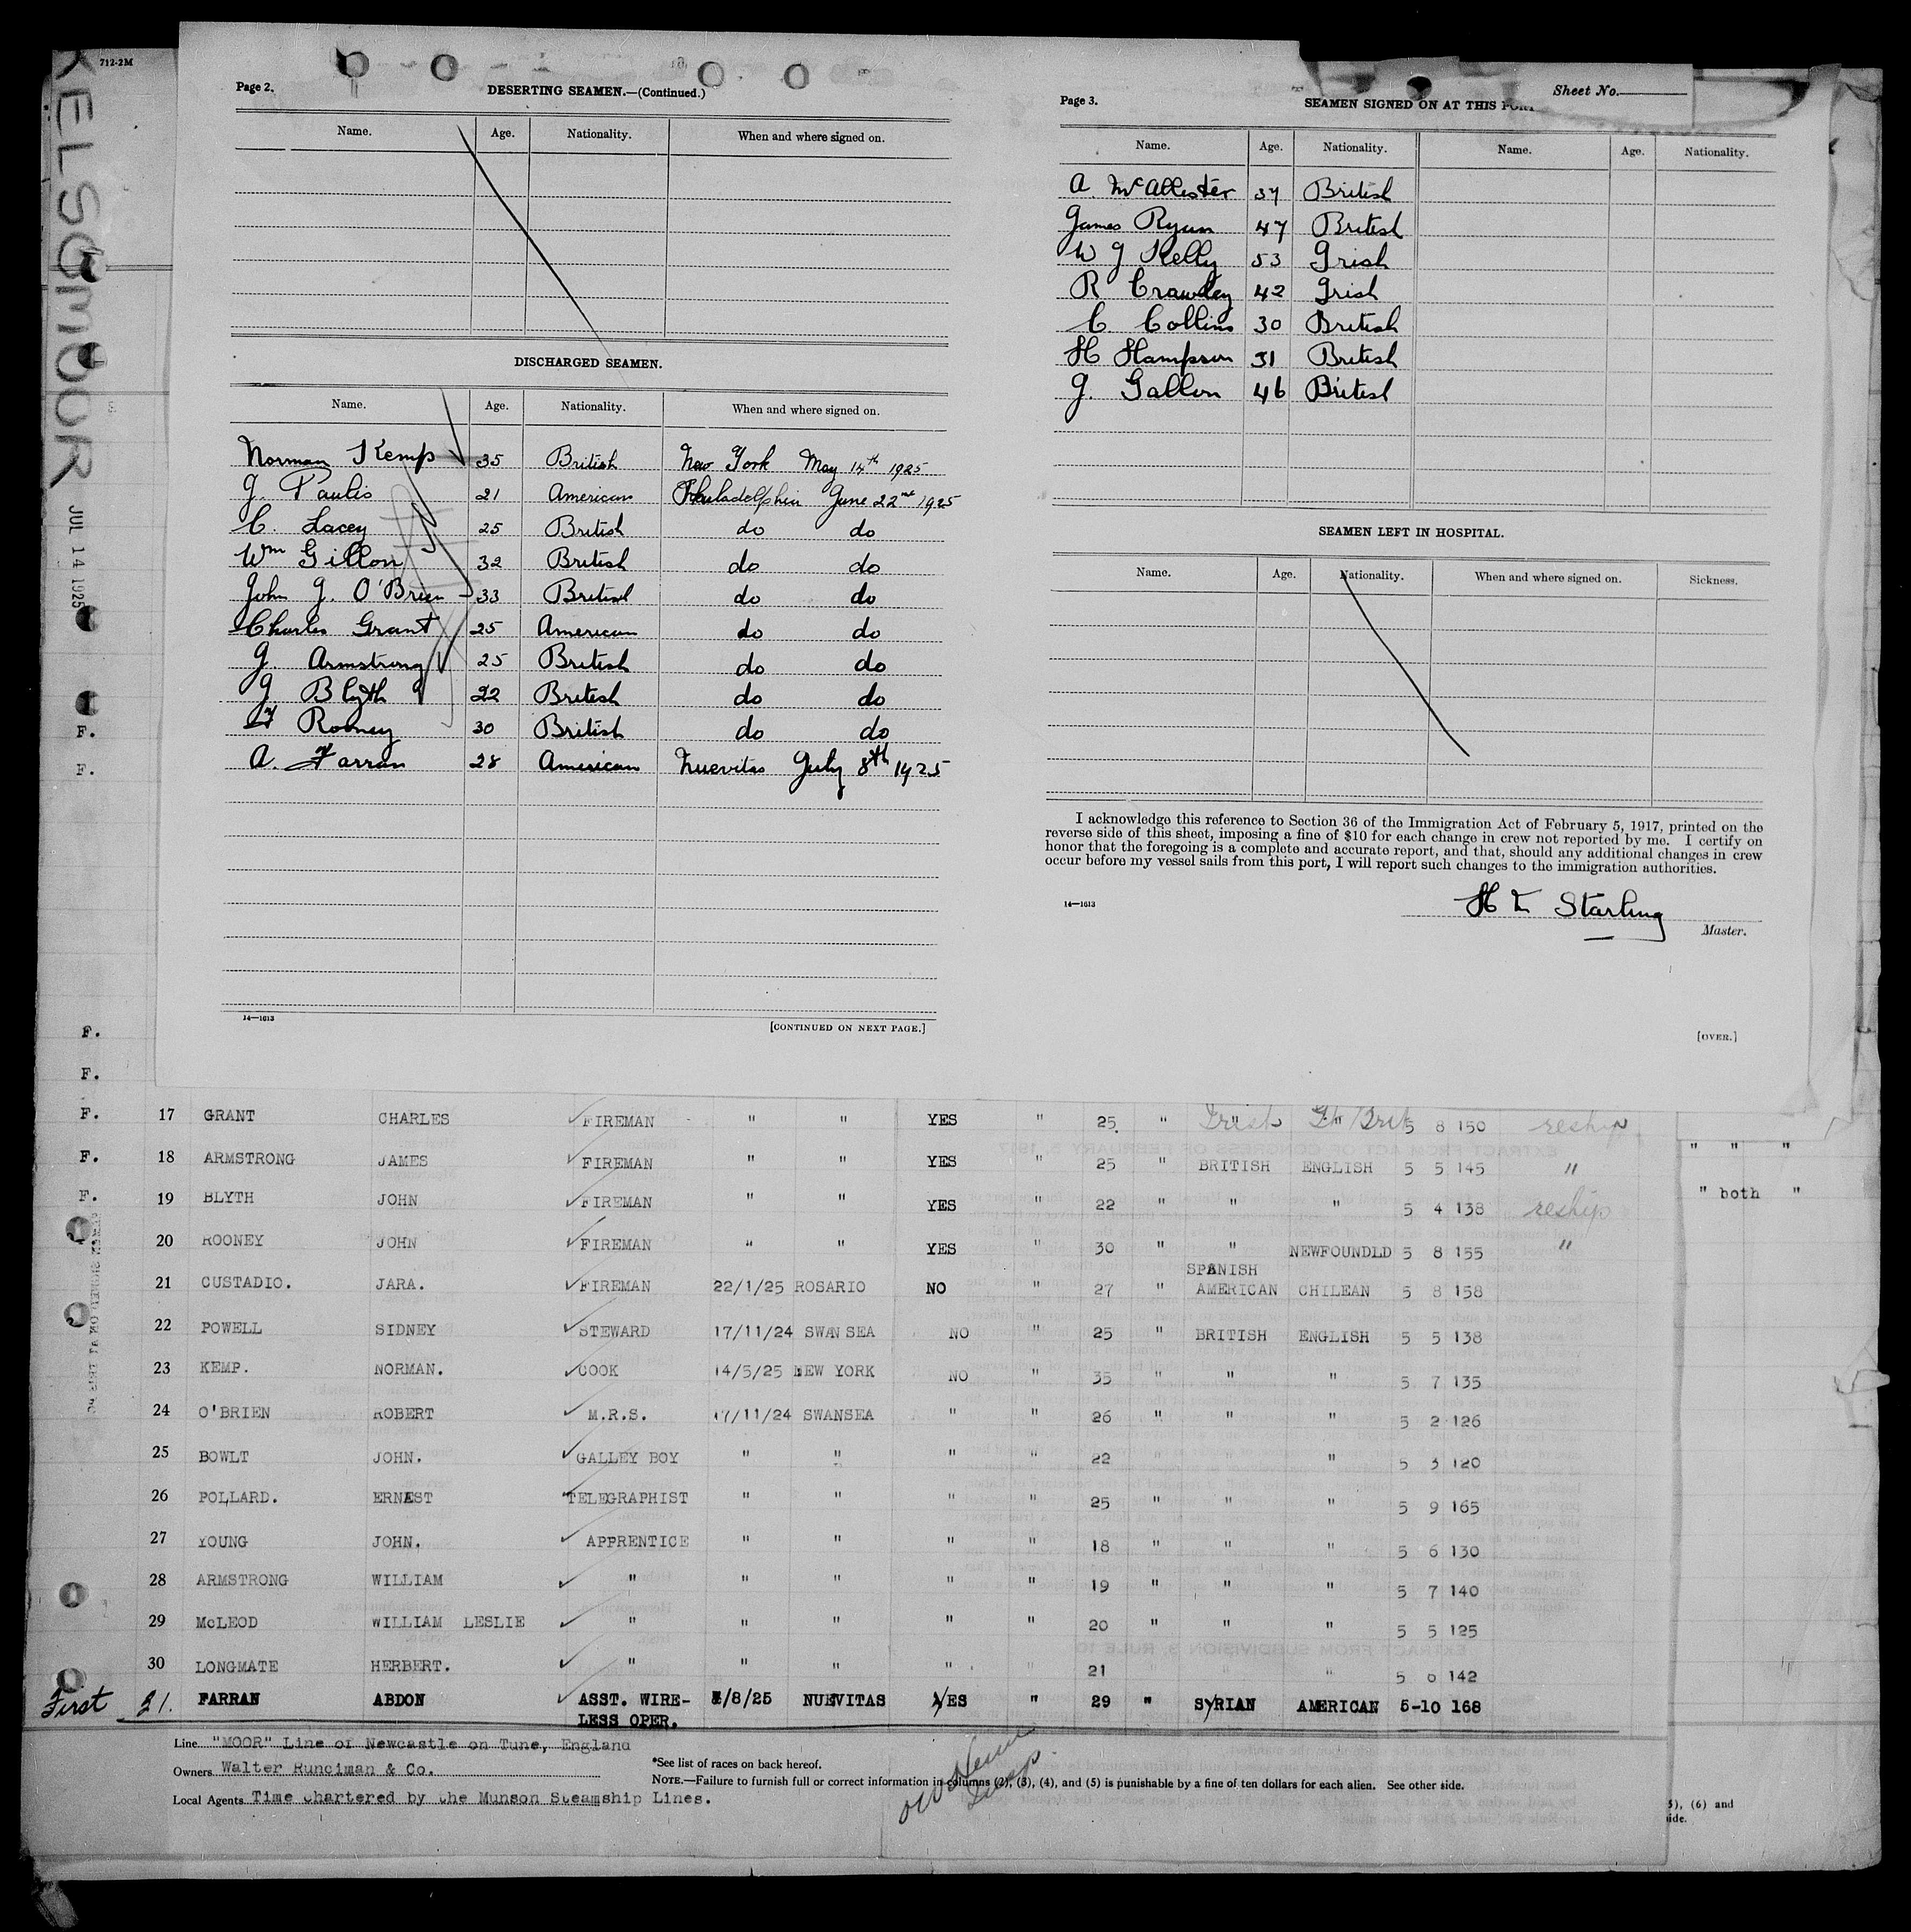 712-2M
KELSOMOOR
JUL 14 1925
Page 2.
DESERTING SEAMEN.—(Continued.)
Name. Age. Nationality. When and where signed on.
DISCHARGED SEAMEN.
Name. Age. Nationality. When and where signed on.
Norman Kemp 35 British New York May 14th 1925
J. Paulis 21 American Philadelphia June 22nd 1925
C. Lacey 25 British do do
Wm Gillon 32 British do do
John J. O'Brien 33 British do do
Charles Grant 25 American do do
J Armstrong 25 British do do
J. Blyth 22 British do do
Rooney 30 British do do
A. Farran 28 American Nuevitas July 8th 1925
14—1613
[CONTINUED ON NEXT PAGE.]
Sheet No.
Page 3.
SEAMEN SIGNED ON AT THIS PORT
Name. Age. Nationality. Name. Age. Nationality.
A. McAllester 37 British
James Ryan 47 British
W J Kelly 53 Irish
R Crawley 42 Irish
C. Collins 30 British
H Hampson 31 British
J. Gallon 46 British
SEAMEN LEFT IN HOSPITAL.
Name. Age. Nationality. When and where signed on. Sickness.
I acknowledge this reference to Section 36 of the Immigration Act of February 5, 1917, printed on the
reverse side of this sheet, imposing a fine of $10 for each change in crew not reported by me. I certify on
honor that the foregoing is a complete and accurate report, and that, should any additional changes in crew
occur before my vessel sails from this port, I will report such changes to the immigration authorities.
14—1613
Starling
Master.
[OVER.]
F.
F.
F.
F.
F. 17 GRANT CHARLES FIREMAN " " YES " 25. " Irish Gt Brit 5 8 150 reship
F. 18 ARMSTRONG JAMES FIREMAN " " YES " 25 " BRITISH ENGLISH 5 5 145 " " " "
F. 19 BLYTH JOHN FIREMAN " " YES " 22 " " " 5 4 138 reship " both "
20 ROONEY JOHN FIREMAN " " YES " 30 " " NEWFOUNDLD 5 8 155 "
21 CUSTADIO. JARA. FIREMAN 22/1/25 ROSARIO NO " 27 " SPANISH AMERICAN CHILEAN 5 8 158
22 POWELL SIDNEY STEWARD 17/11/24 SWANSEA NO " 25 " BRITISH ENGLISH 5 5 138
23 KEMP. NORMAN. COOK 14/5/25 NEW YORK NO " 35 " " " 5 7 135
24 O'BRIEN ROBERT M.R.S. 17/11/24 SWANSEA " " 26 " " " 5 2 126
25 BOWLT JOHN. GALLEY BOY " " " " 22 " " " 5 3 120
26 POLLARD. ERNEST TELEGRAPHIST " " " " 25 " " " 5 9 165
27 YOUNG JOHN. APPRENTICE " " " " 18 " " " 5 6 130
28 ARMSTRONG WILLIAM " " " " " 19 " " " 5 7 140
29 McLEOD WILLIAM LESLIE " " " " " 20 " " " 5 5 125
30 LONGMATE HERBERT. " " " " " 21 " " " 5 6 142
First 31. FARRAN ABDON ASST. WIRE- /8/25 NUEVITAS YES " 29 " SYRIAN AMERICAN 5-10 168
LESS OPER.
Line "MOOR" Line of Newcastle on Tune, England
Owners Walter Runciman & Co.
Local Agents Time chartered by the Munson Steamship Lines.
*See list of races on back hereof.
NOTE.—Failure to furnish full or correct information in columns (2), (3), (4), and (5) is punishable by a fine of ten dollars for each alien. See other side.
5), (6) and
ide.